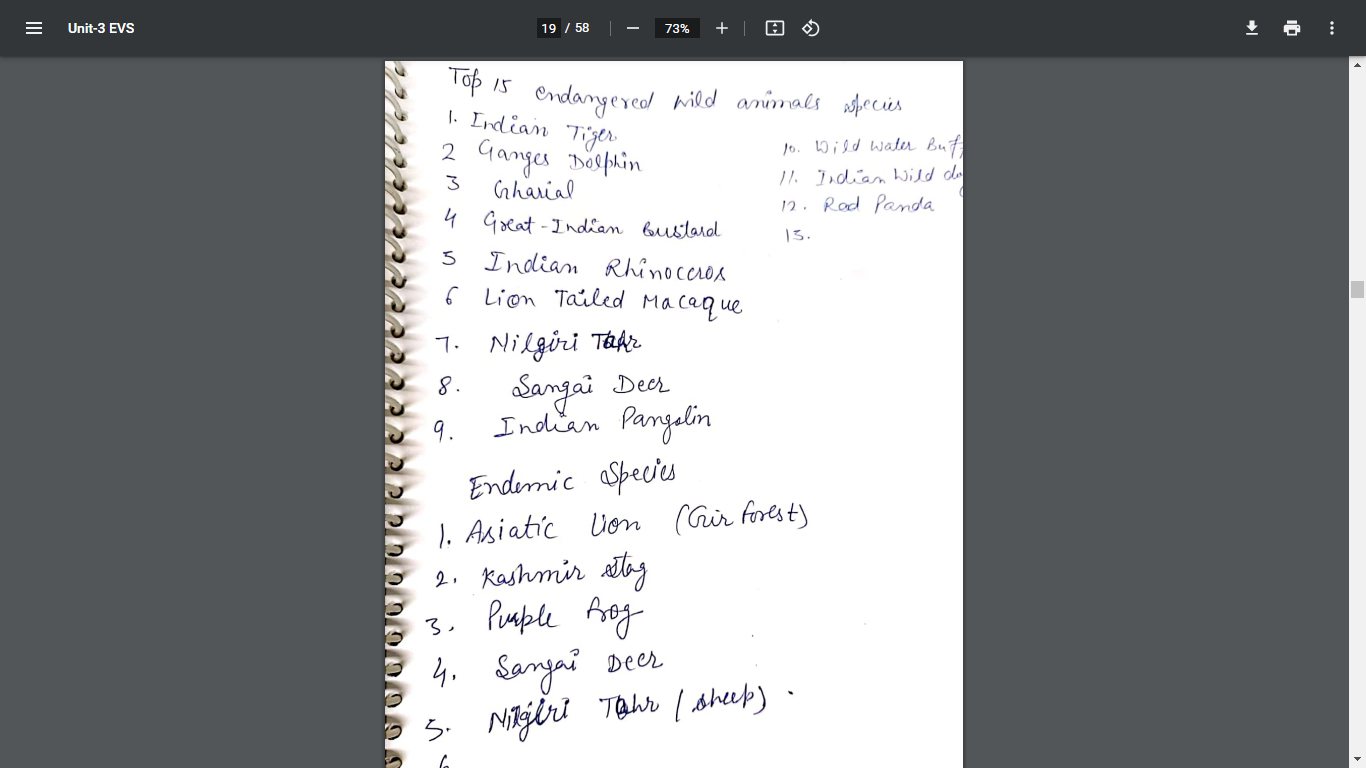 Unit-3 EVS
19 / 58
73%
Top 15 endangered wild animals species
1. Indian Tiger
2 Ganges Dolphin
3 Gharial
4 Great-Indian Bustard
5 Indian Rhinoceros
6 Lion Tailed Macaque
7. Nilgiri Tahr
8. Sangai Deer
9. Indian Pangolin
10. Wild Water Buf
11. Indian Wild do
12. Red Panda
13.
Endemic Species
1. Asiatic Lion (Gir forest)
2. Kashmir stag
3. Purple frog
4. Sangai Deer
5. Nilgiri Tahr (sheep).
6